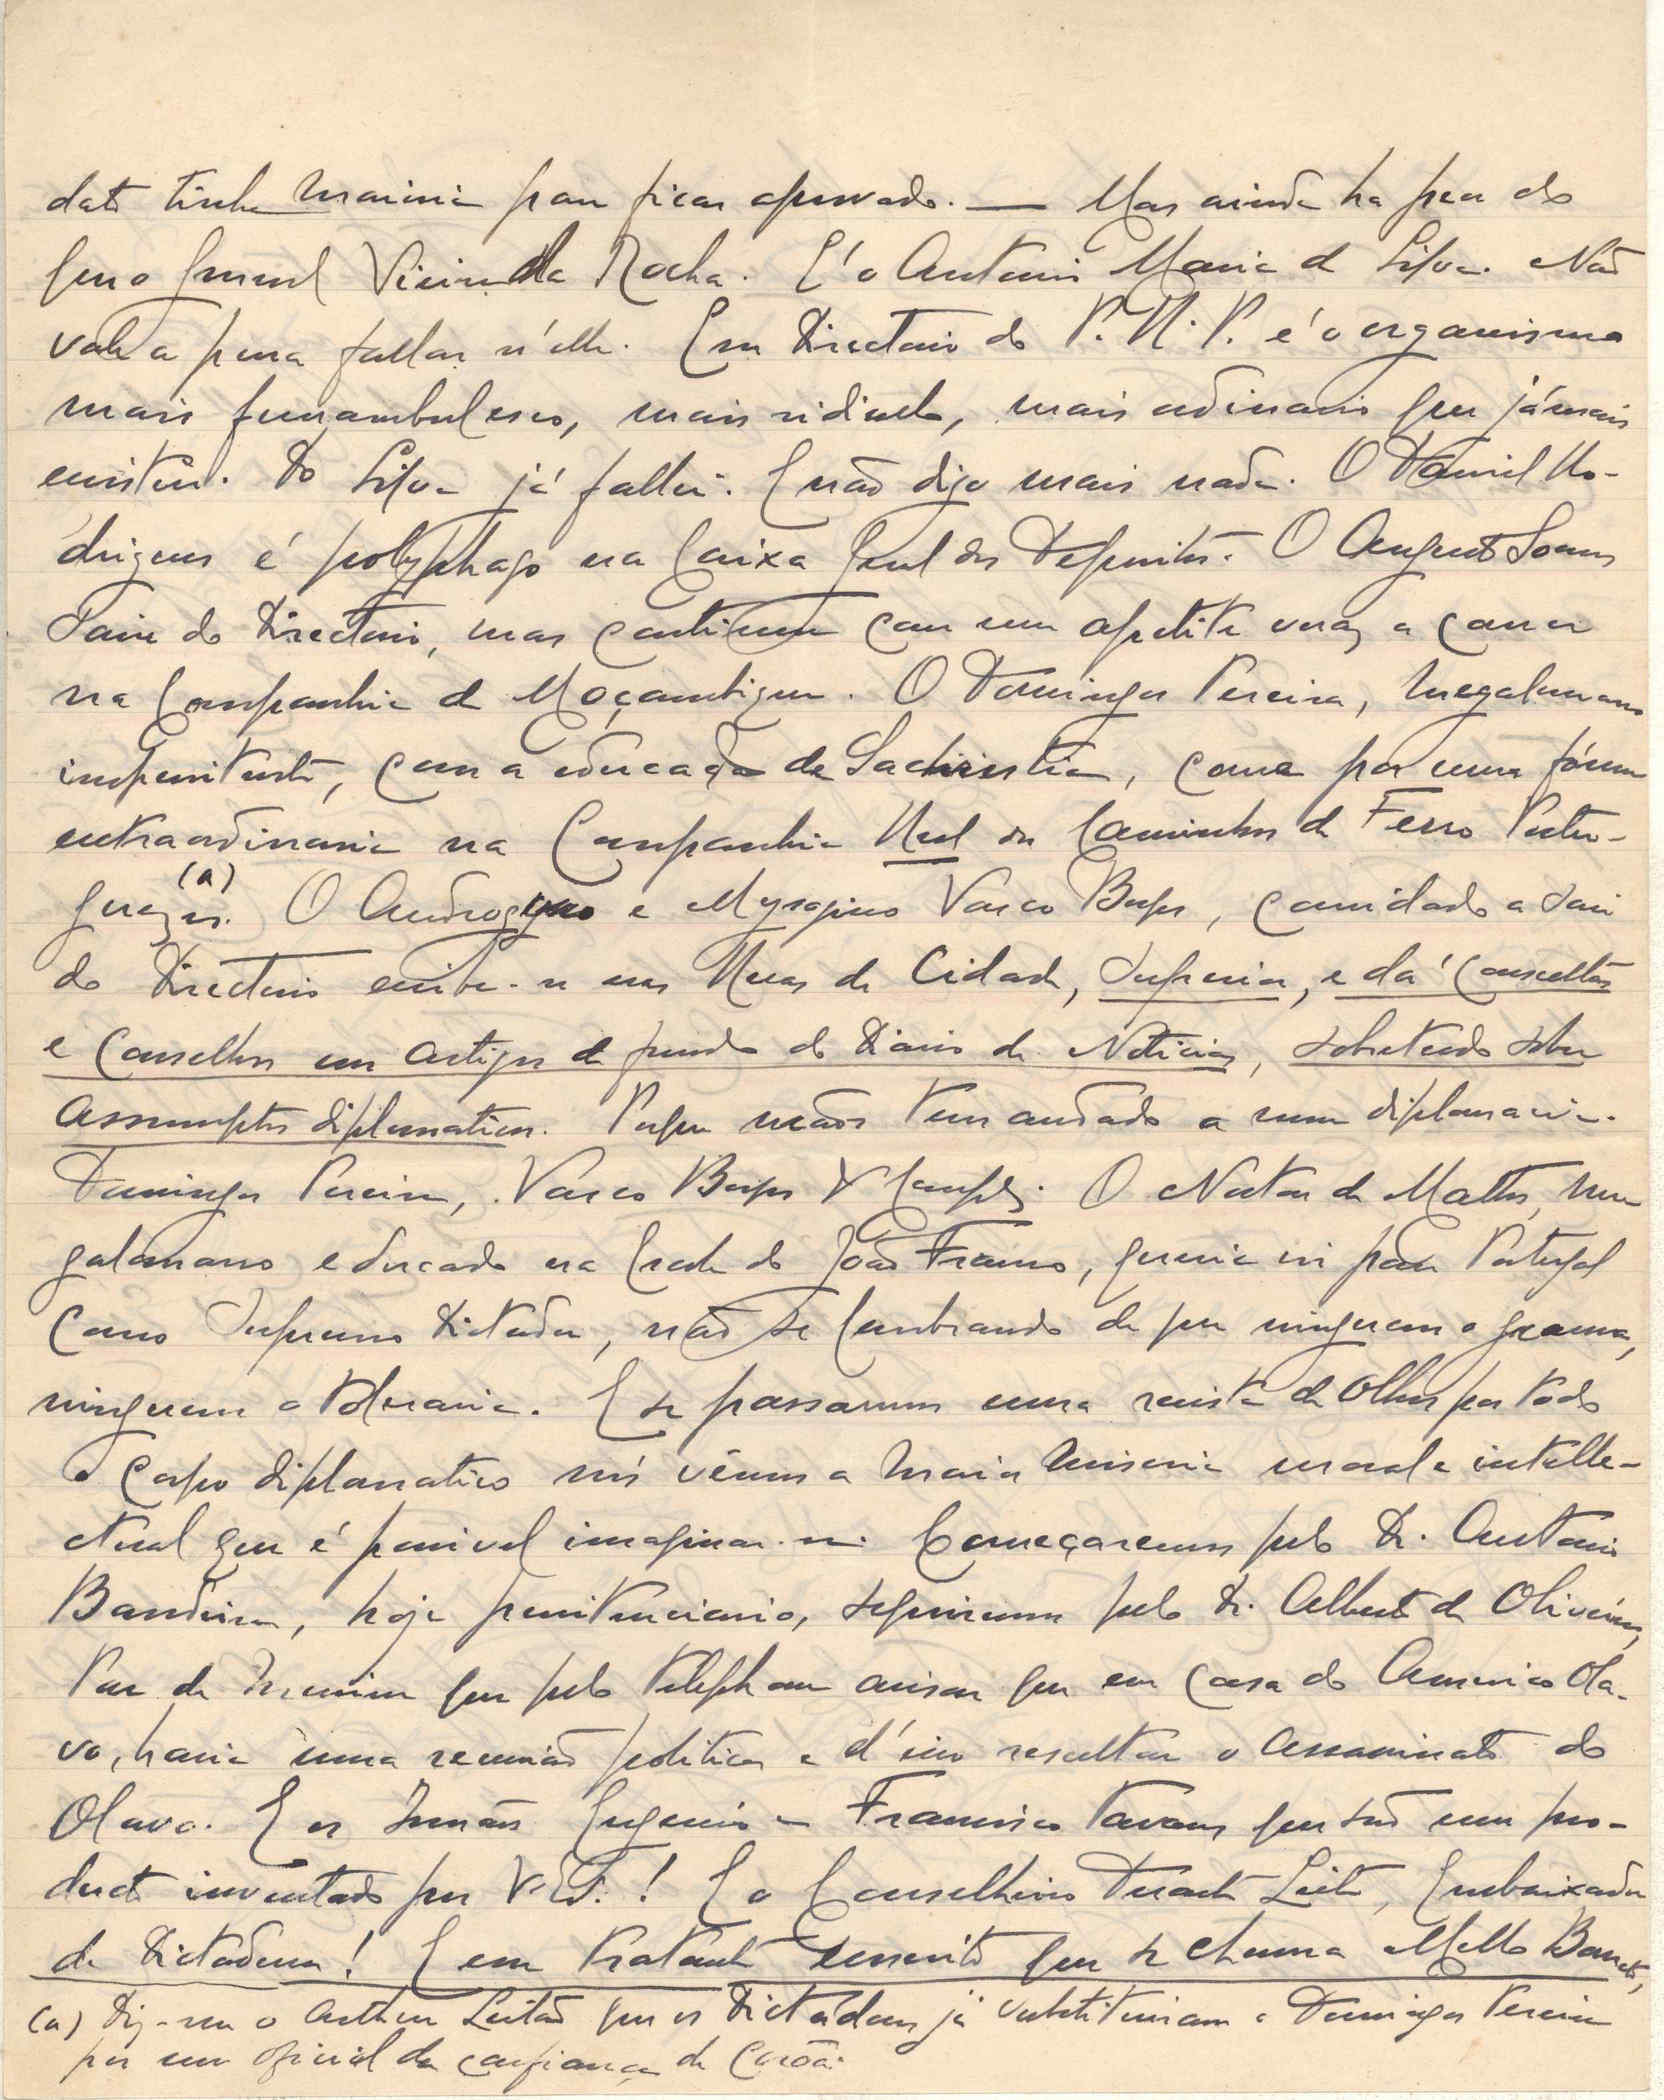 dato tinha maioria para ficar aprovado. — Mas ainda ha peor do
que o General Vieira da Rocha. É o Antonio Maria da Silva. Não
vale a pena fallar n'elle. Esse Directorio do P. R. P. é o organismo
mais funambulesco, mais ridiculo, mais ordinario que jámais
existiu. Do Silva já fallei. E não digo mais nada. O Daniel Ro-
drigues é polyphago na Caixa Geral dos Depositos. O Augusto Soares
saiu do Directorio, mas continua com um apetite voraz a comer
na Companhia de Moçambique. O Domingos Pereira, megalomano
impenitente, com a educação de Sachristia, come por uma fórma
extraordinaria na Companhia Real dos Caminhos de Ferro Portu-
guezes. (a) O Androgyno e Mysogino Vasco Borges, convidado a sair
do Directorio exibe-se nas Ruas da Cidade, superior, e dá consultas
e conselhos em artigos de fundo do Diario de Noticias, sobretudo sobre
assumptos diplomaticos. Porque mãos tem andado a nossa diplomacia.
Domingos Pereira, Vasco Borges & Comp.ª. O Norton de Mattos, me-
galomano educado na Escola do João Franco, queria vir para Portugal
como Supremo Dictador, não se lembrando de que ninguem o grama,
ninguem o toleraria. E se passarmos uma revista de olhos por todo
o Corpo diplomatico nós vêmos a maior miseria moral e intelle-
ctual que é possivel imaginar-se. Começaremos pelo Dr. Antonio
Bandeira, hoje penitenciario, seguiremos pelo Dr. Alberto de Oliveira,
que pelo telephone avisou que em casa do Americo Ola-
vo, havia uma reunião politica e d'isso resultou o assassinato do
Olavo. E os Irmãos Eugenio e Francisco Tavares que são um pro-
ducto inventado por V. Ex.ª! E o Conselheiro Duarte Leite, Embaixador
da Dictadura! E esse tratante que se chama Mello Barreto,
(a) Diz-me o Arthur Leitão que os Dictadores já substituiram o Domingos Pereira
por um oficial da confiança da Corôa.